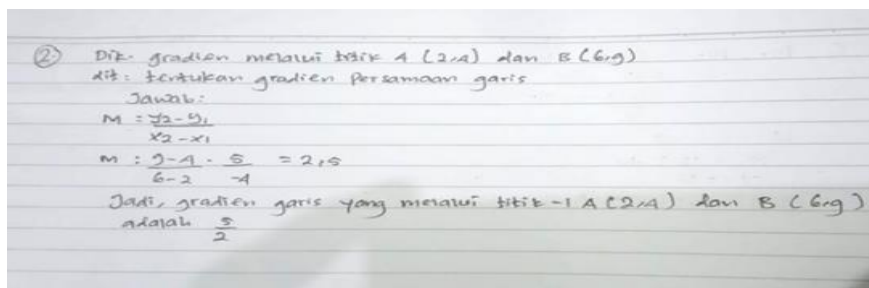 ② Dik. gradien melalui titik A (2,4) dan B (6,9)
dit : tentukan gradien Persamaan garis
Jawab :
M = y2 - y1
x2 - x1
m : 9-4 . 5 = 2,5
6-2 -4
Jadi, gradien garis yang melalui titik -1 A (2,4) dan B (6,9)
adalah 5
2